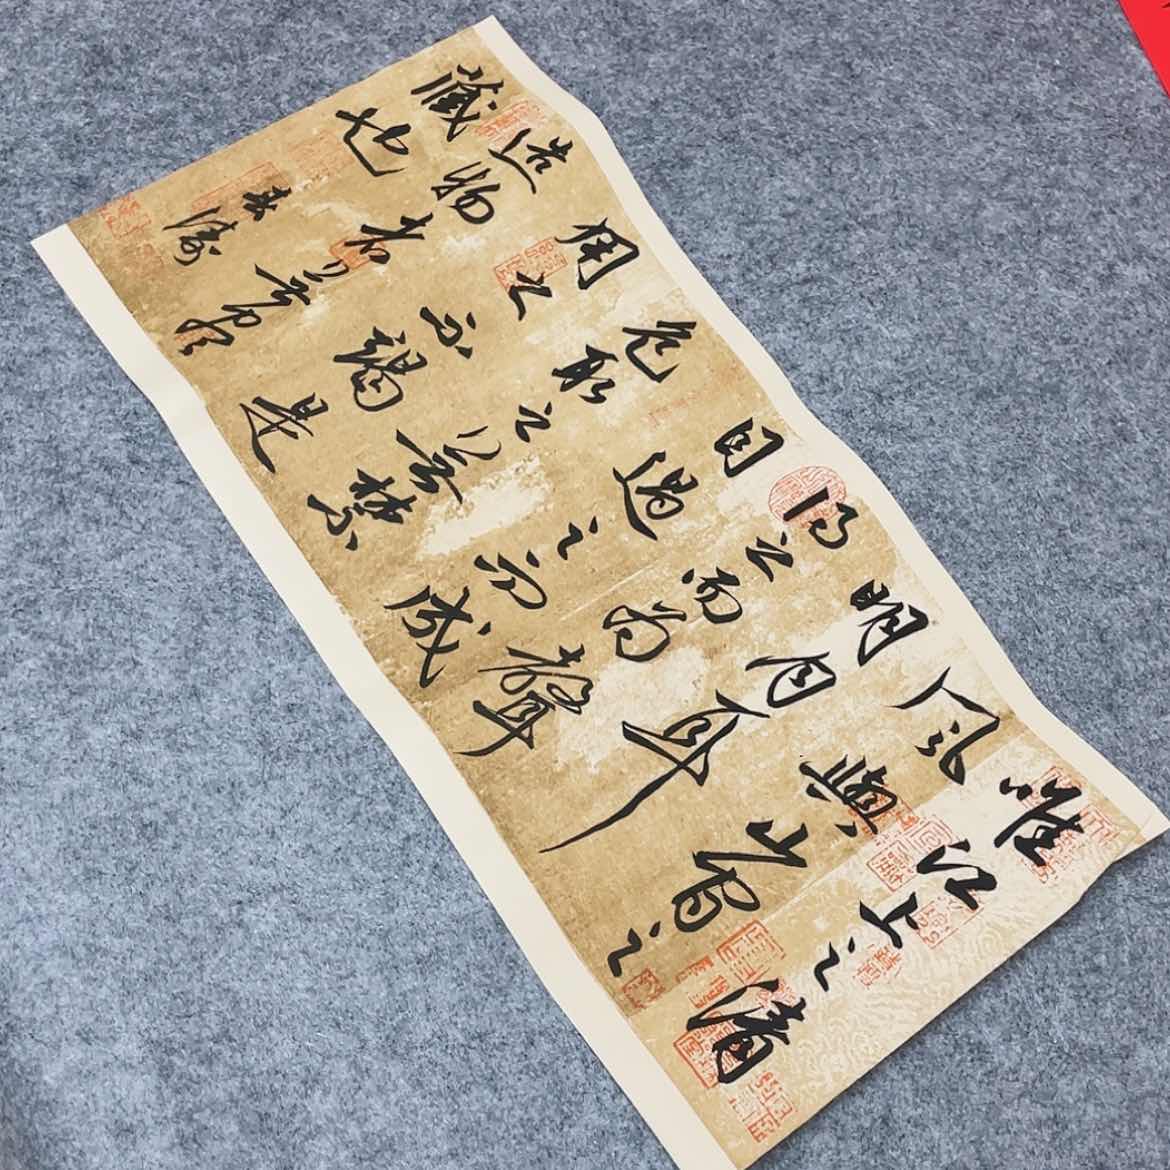 唯江上之清
風與山間之
明月耳
得之而為聲
目遇之而成
色取之無禁
用之不竭是
造物者無盡
藏也